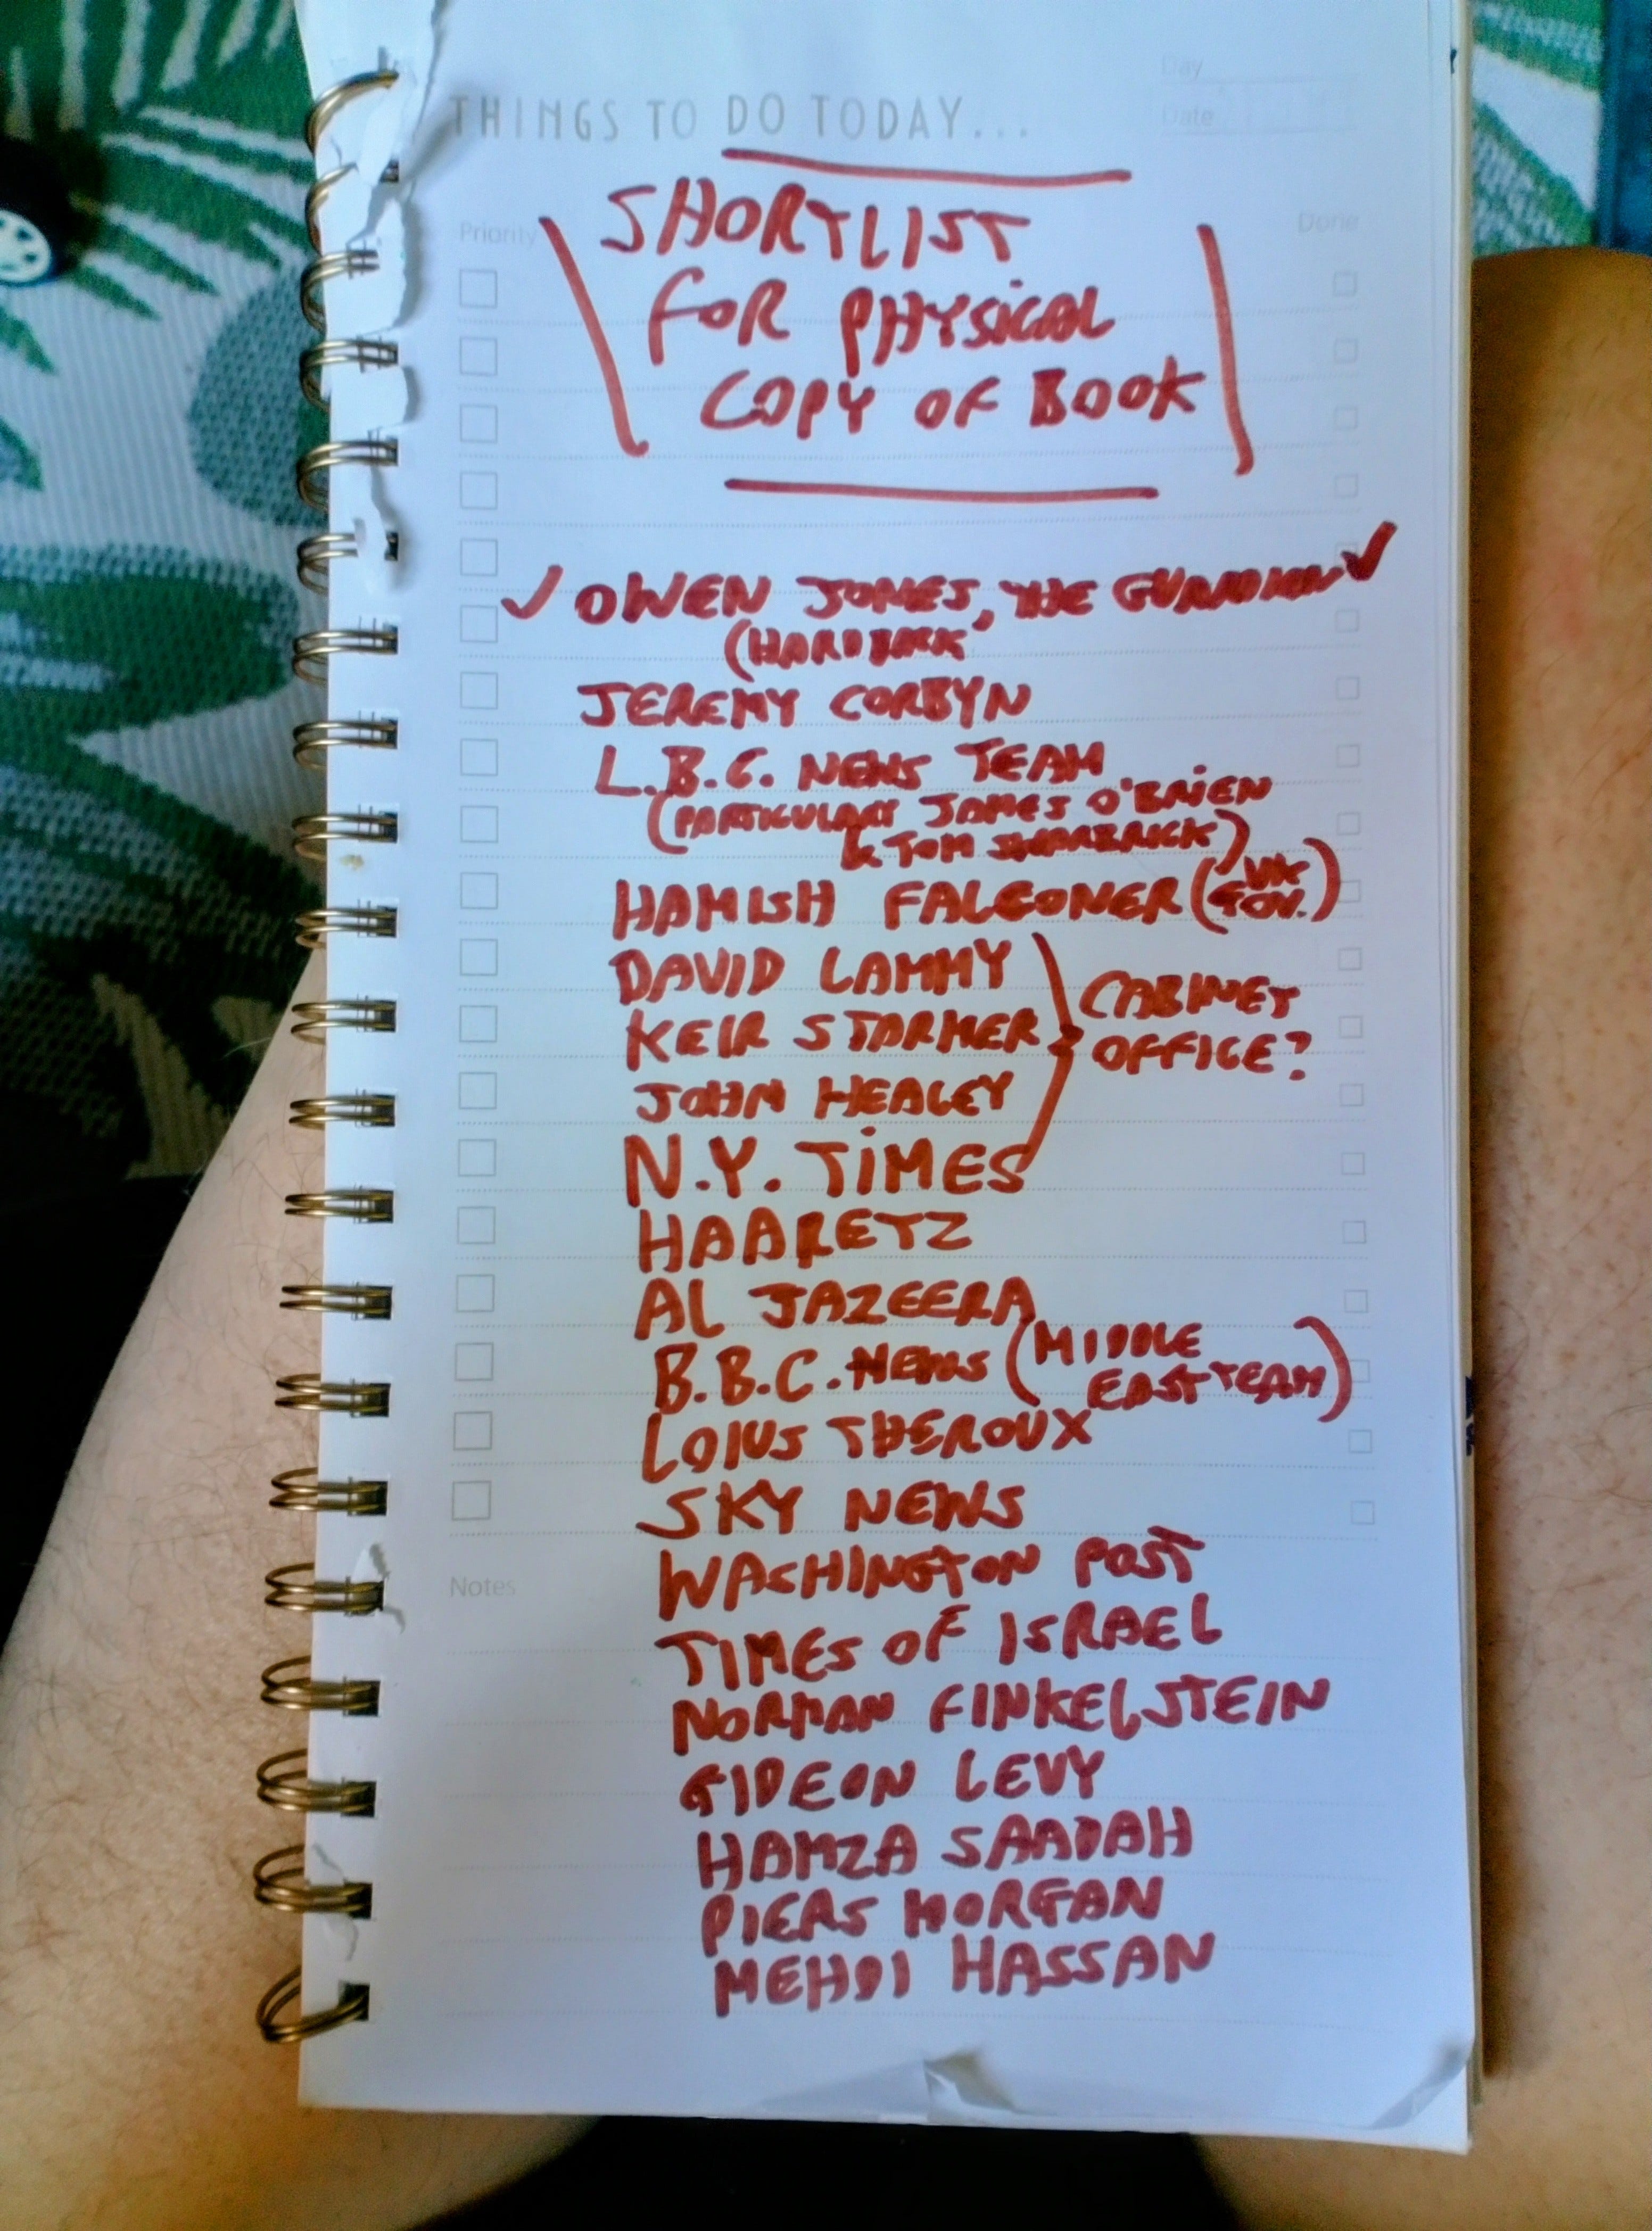 Day
THINGS TO DO TODAY...
Date
Priority
Done
SHORTLIST
FOR PHYSICAL
COPY OF BOOK
✓ OWEN JONES, THE GUARDIAN ✓
(HARDBACK
JEREMY CORBYN
L.B.C. NEWS TEAM
(PARTICULARY JAMES O'BRIEN
& TOM SWARBRICK)
HAMISH FALCONER (UK
GOV.)
DAVID LAMMY
CABINET
KEIR STARMER
OFFICE?
JOHN HEALEY
N.Y. TIMES
HAARETZ
AL JAZEERA
B.B.C. NEWS (MIDDLE
EAST TEAM)
LOIUS THEROUX
SKY NEWS
WASHINGTON POST
Notes
TIMES OF ISRAEL
NORMAN FINKELSTEIN
GIDEON LEVY
HAMZA SAADAH
PIERS MORGAN
MEHDI HASSAN